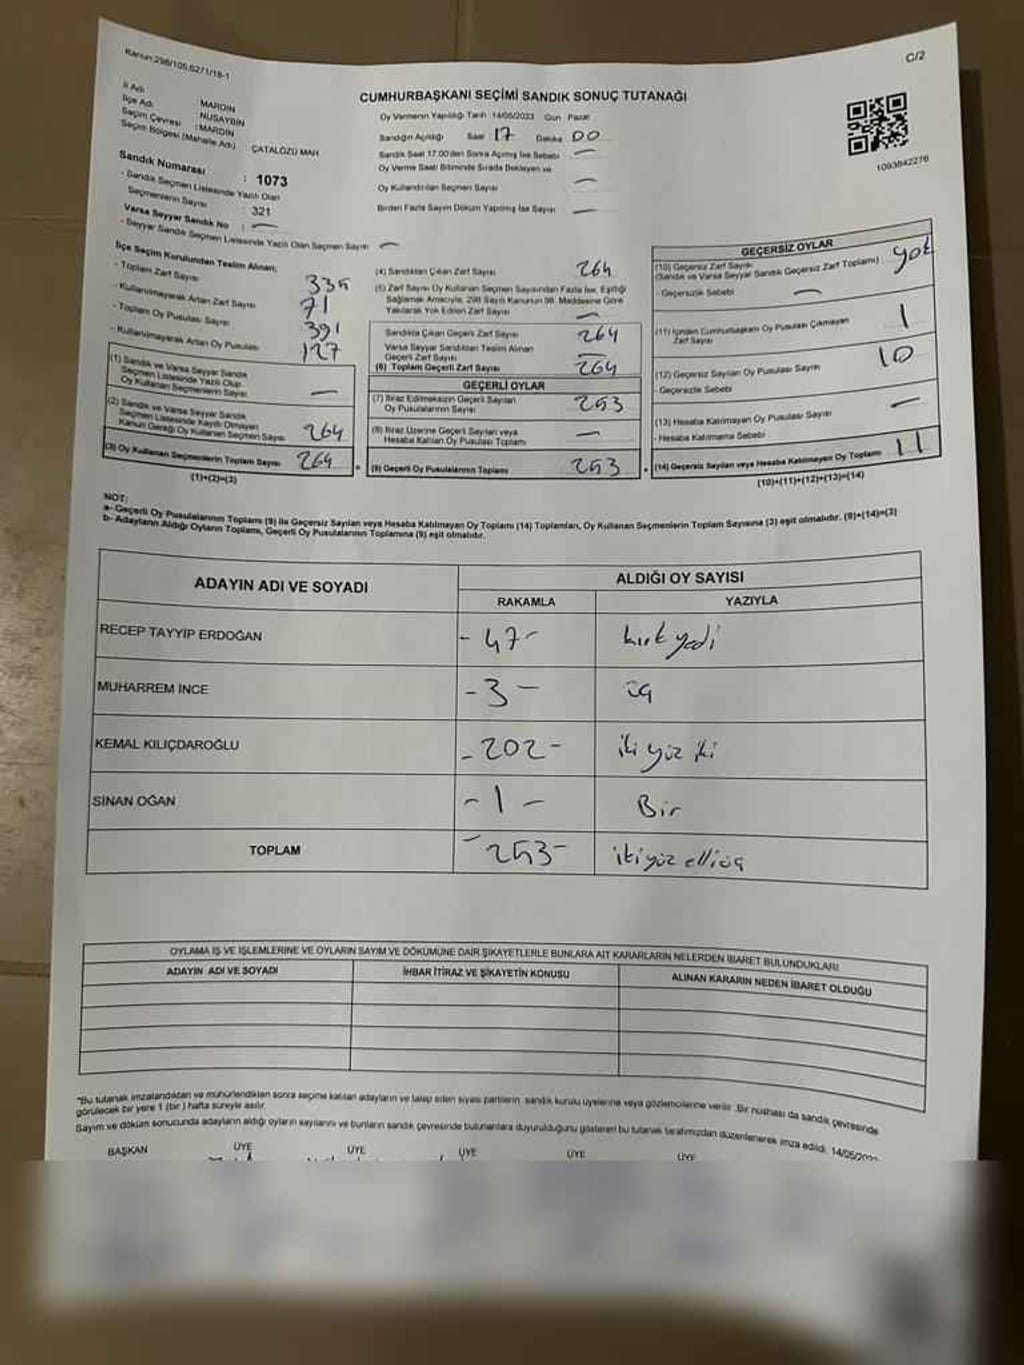 Kanun:298/105,6271/18-1
C/2
CUMHURBAŞKANI SEÇİMİ SANDIK SONUÇ TUTANAĞI
İl Adı : MARDİN
İlçe Adı : NUSAYBİN
Seçim Çevresi : MARDİN
Seçim Bölgesi (Mahalle Adı) : ÇATALÖZÜ MAH.
Sandık Numarası : 1073
- Sandık Seçmen Listesinde Yazılı Olan
Seçmenlerin Sayısı : 321
Varsa Seyyar Sandık No : —
- Seyyar Sandık Seçmen Listesinde Yazılı Olan Seçmen Sayısı —
Oy Vermenin Yapıldığı Tarih 14/05/2023 Gün Pazar
Sandığın Açıldığı Saat 17 Dakika 00
Sandık Saat 17.00'den Sonra Açılmış İse Sebebi —
Oy Verme Saati Bitiminde Sırada Bekleyen ve
Oy Kullandırılan Seçmen Sayısı —
Birden Fazla Sayım Döküm Yapılmış İse Sayısı —
1093842276
İlçe Seçim Kurulundan Teslim Alınan;
- Toplam Zarf Sayısı 335
- Kullanılmayarak Artan Zarf Sayısı 71
- Toplam Oy Pusulası Sayısı 391
- Kullanılmayarak Artan Oy Pusulası 127
(1) Sandık ve Varsa Seyyar Sandık
Seçmen Listesinde Yazılı Olup
Oy Kullanan Seçmenlerin Sayısı —
(2) Sandık ve Varsa Seyyar Sandık
Seçmen Listesinde Kayıtlı Olmayan
Kanun Gereği Oy Kullanan Seçmen Sayısı 264
(3) Oy Kullanan Seçmenlerin Toplam Sayısı 264
(1)+(2)=(3)
(4) Sandıktan Çıkan Zarf Sayısı 264
(5) Zarf Sayısı Oy Kullanan Seçmen Sayısından Fazla İse, Eşitliği
Sağlamak Amacıyla, 298 Sayılı Kanunun 98. Maddesine Göre
Yakılarak Yok Edilen Zarf Sayısı —
Sandıkta Çıkan Geçerli Zarf Sayısı 264
Varsa Seyyar Sandıktan Teslim Alınan
Geçerli Zarf Sayısı —
(6) Toplam Geçerli Zarf Sayısı 264
GEÇERLİ OYLAR
(7) İtiraz Edilmeksizin Geçerli Sayılan
Oy Pusulalarının Sayısı 253
(8) İtiraz Üzerine Geçerli Sayılan veya
Hesaba Katılan Oy Pusulası Toplamı —
(9) Geçerli Oy Pusulalarının Toplamı 253
GEÇERSİZ OYLAR
(10) Geçersiz Zarf Sayısı
(Sandık ve Varsa Seyyar Sandık Geçersiz Zarf Toplamı) yok
- Geçersizlik Sebebi —
(11) İçinden Cumhurbaşkanı Oy Pusulası Çıkmayan
Zarf Sayısı 1
(12) Geçersiz Sayılan Oy Pusulası Sayısı 10
- Geçersizlik Sebebi
(13) Hesaba Katılmayan Oy Pusulası Sayısı —
- Hesaba Katılmama Sebebi
(14) Geçersiz Sayılan veya Hesaba Katılmayan Oy Toplamı 11
(10)+(11)+(12)+(13)=(14)
NOT:
a- Geçerli Oy Pusulalarının Toplamı (9) ile Geçersiz Sayılan veya Hesaba Katılmayan Oy Toplamı (14) Toplamları, Oy Kullanan Seçmenlerin Toplam Sayısına (3) eşit olmalıdır. (9)+(14)=(3)
b- Adayların Aldığı Oyların Toplamı, Geçerli Oy Pusulalarının Toplamına (9) eşit olmalıdır.
ADAYIN ADI VE SOYADI ALDIĞI OY SAYISI
RAKAMLA YAZIYLA
RECEP TAYYİP ERDOĞAN - 47 - kırk yedi
MUHARREM İNCE - 3 - üç
KEMAL KILIÇDAROĞLU - 202 - iki yüz iki
SİNAN OĞAN - 1 - Bir
TOPLAM - 253 - iki yüz elli üç
OYLAMA İŞ VE İŞLEMLERİNE VE OYLARIN SAYIM VE DÖKÜMÜNE DAİR ŞİKAYETLERLE BUNLARA AİT KARARLARIN NELERDEN İBARET BULUNDUKLARI
ADAYIN ADI VE SOYADI İHBAR İTİRAZ VE ŞİKAYETİN KONUSU ALINAN KARARIN NEDEN İBARET OLDUĞU
*Bu tutanak imzalandıktan ve mühürlendikten sonra seçime katılan adayların ve talep eden siyasi partilerin sandık kurulu üyelerine veya gözlemcilerine verilir. Bir nüshası da sandık çevresinde
görülecek bir yere 1 (bir) hafta süreyle asılır.
Sayım ve döküm sonucunda adayların aldığı oyların sayılarını ve bunların sandık çevresinde bulunanlara duyurulduğunu gösteren bu tutanak tarafımızdan düzenlenerek imza edildi. 14/05/2023
BAŞKAN ÜYE ÜYE ÜYE ÜYE ÜYE